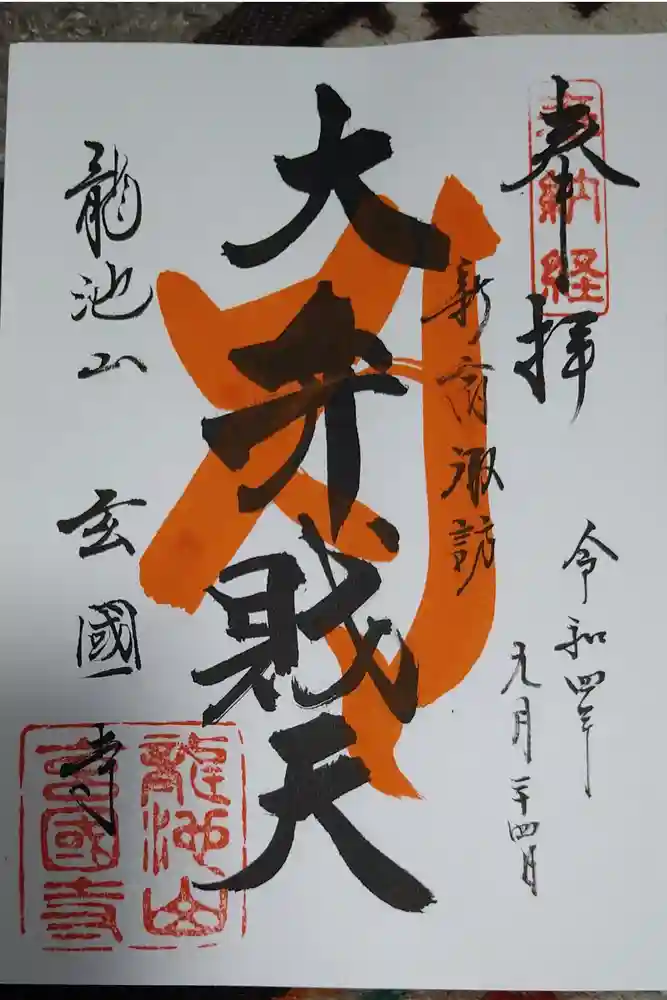 奉拝
奉納経
令和四年
九月二十四日
新宿諏訪
大弁財天
龍池山
玄國寺
龍池山
玄國寺